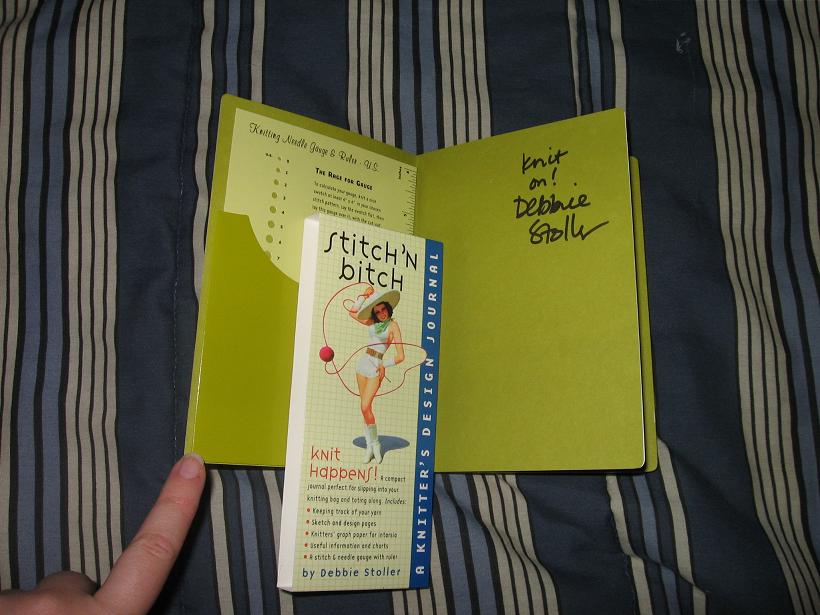 Knitting Needle Gauge & Ruler - U.S.
THE RAGE FOR GAUGE
To calculate your gauge, knit a nice
swatch at least 4" x 4" in your chosen
stitch pattern, lay the swatch flat, then
lay this gauge over it, with the cut out
knit
on!
Debbie
Stoller
stitch'N
bitch
knit
HAPPENS! A compact
journal perfect for slipping into your
knitting bag and toting along. Includes:
• Keeping track of your yarn
• Sketch and design pages
• Knitters' graph paper for intarsia
• Useful information and charts
• A stitch & needle gauge with ruler
by Debbie Stoller
A KNITTER'S DESIGN JOURNAL